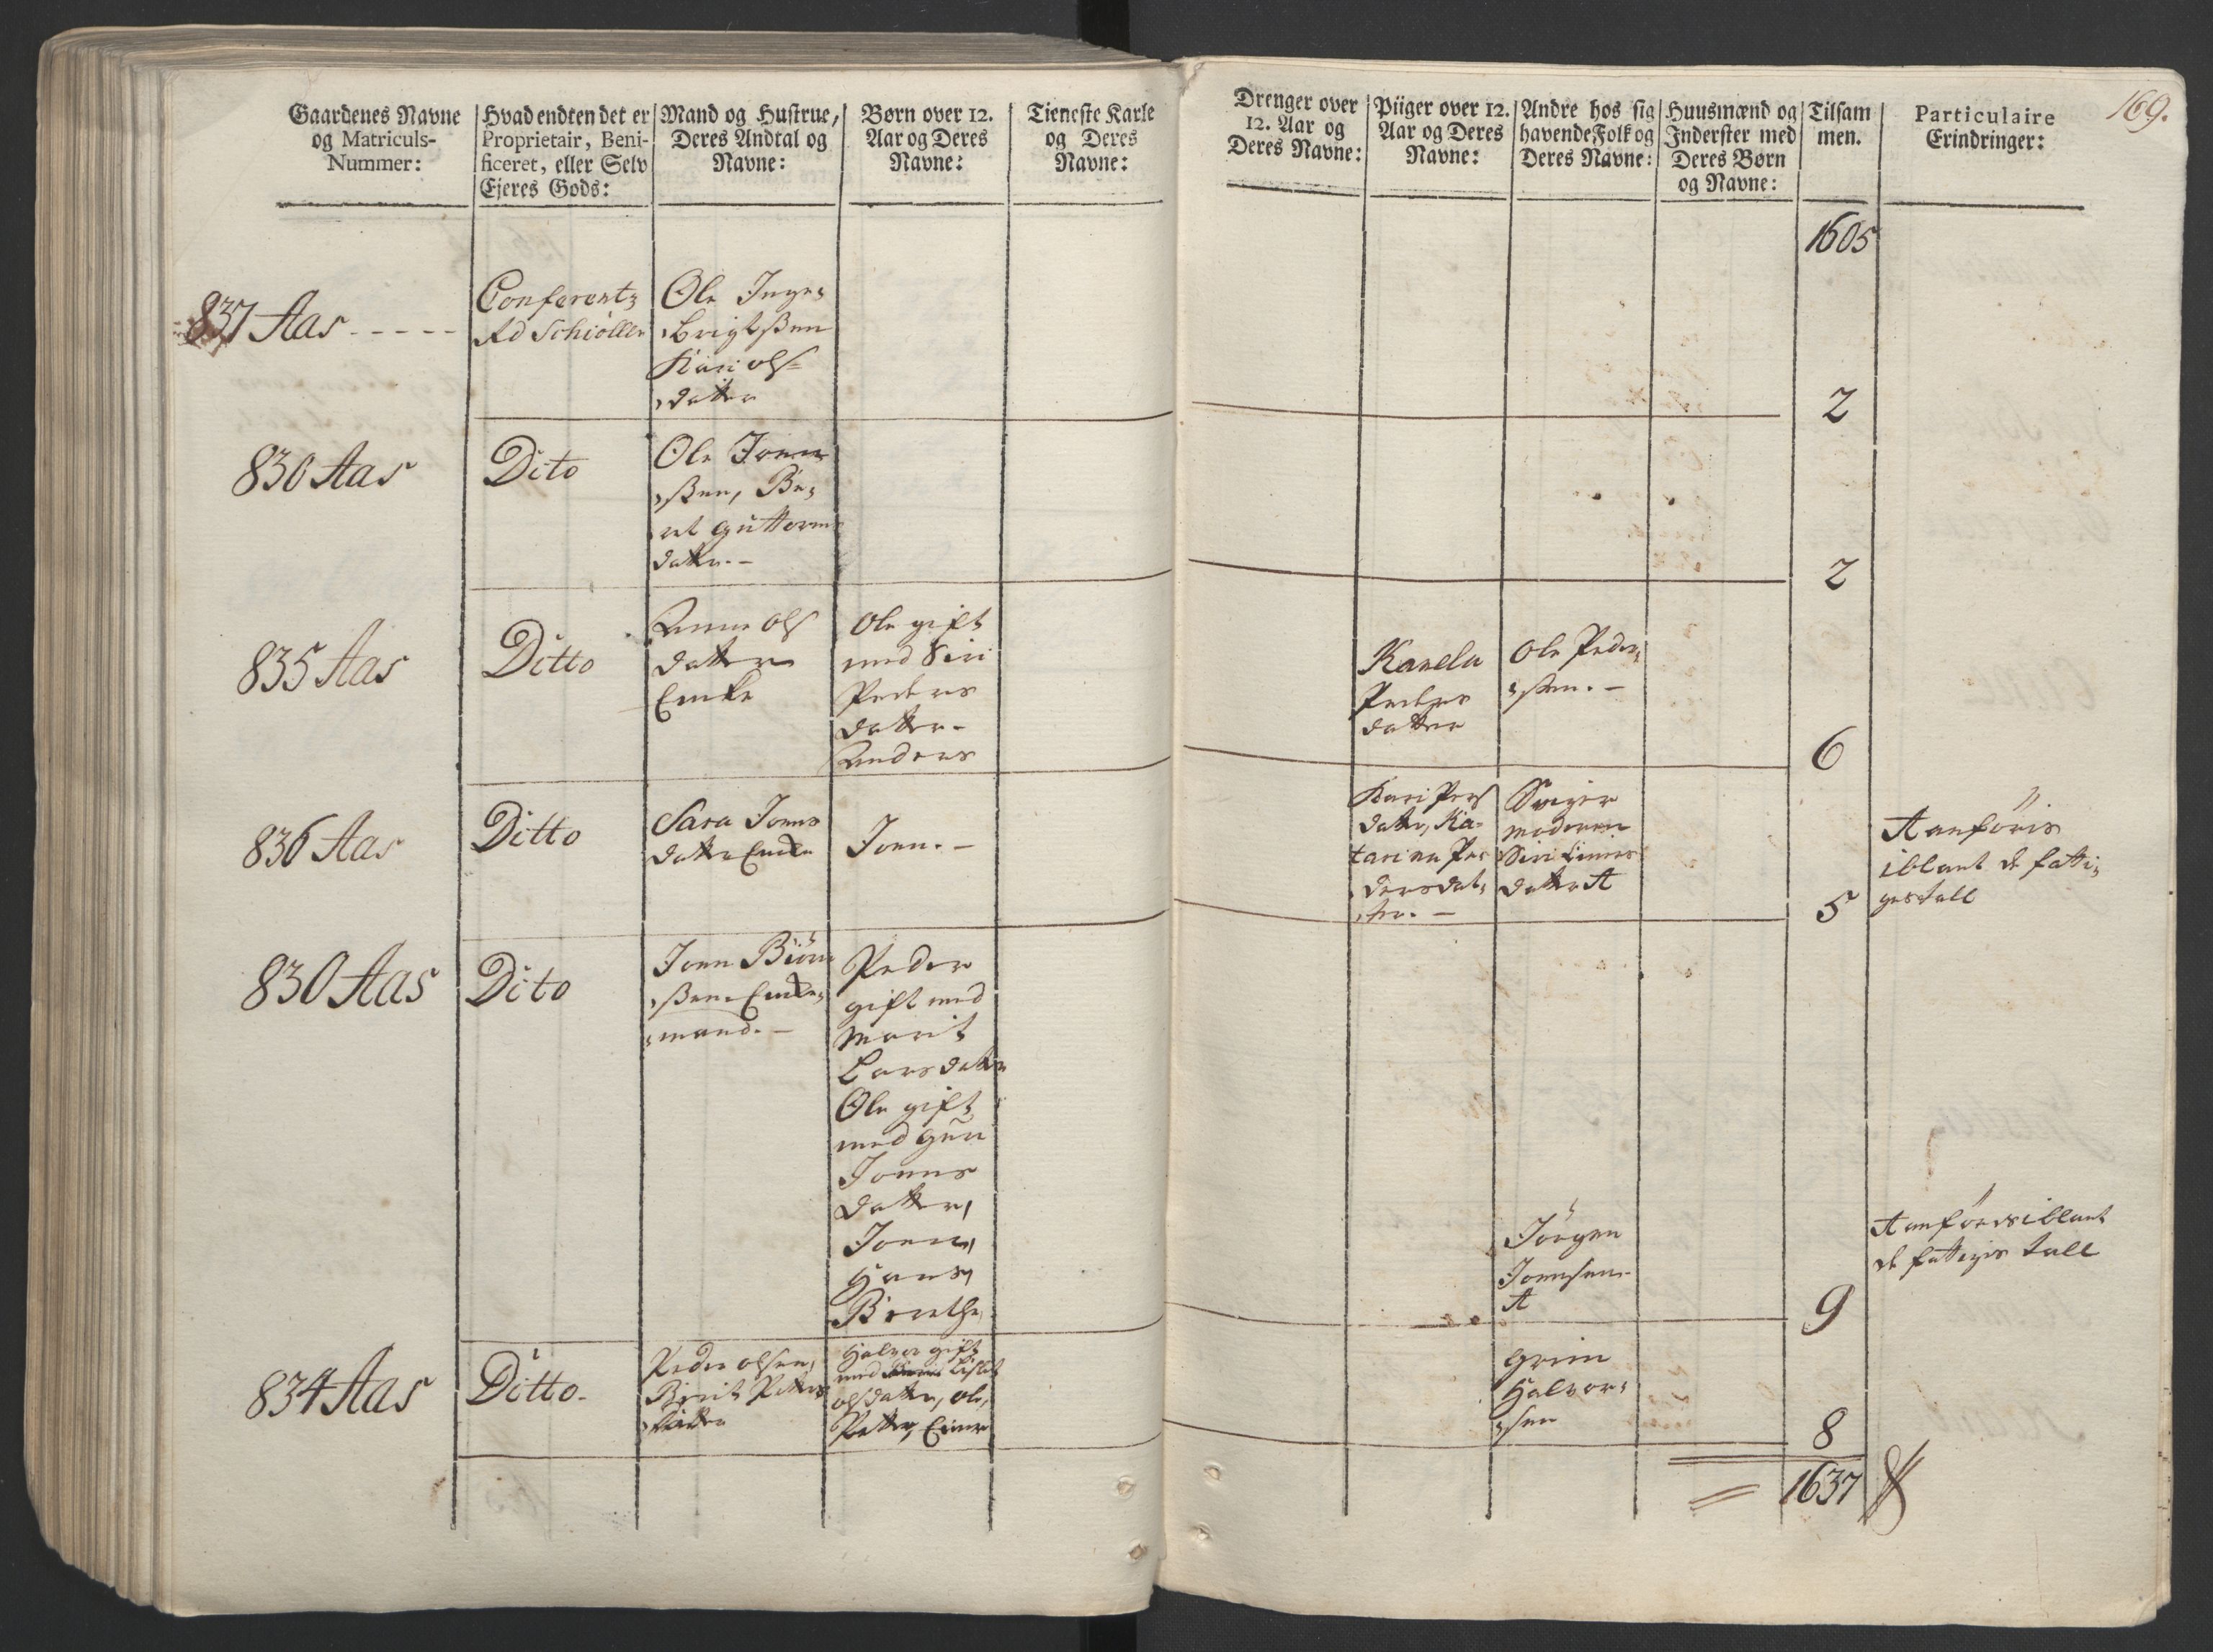 Gaardenes Navne
og Matriculs-
Nummer:
Hvad endten det er
Proprietair, Beni-
ficeret, eller Selv
Ejeres Gods:
Mand og Hustrue,
Deres Andtal og
Navne:
Børn over 12.
Aar og Deres
Navne:
Tieneste Karle
og Deres
Navne:
Drenger over
12. Aar og
Deres Navne:
Piiger over 12.
Aar og Deres
Navne:
Andre hos sig
havende Folk og
Deres Navne:
Huusmænd og
Inderster med
Deres Børn
og Navne:
Tilsam
men.
Particulaire
Erindringer:
169.
1605
837 Aas
Conferentz
Rd Schiøller
Ole Inge-
brigtßen
Kari ols
datter
2
830 Aas
Dito
Ole Joen
ßen, Be-
ret Guttorm
datter.
2
835 Aas
Ditto
Anne ols
datter
Encke
Ole gift
med Siri
Peders
datter
Anders
Karelu
Peders
datter
Ole Peder
ßen.
6
836 Aas
Ditto
Sara Joens
datter Encke
Joen.
Kari Pers
datter, Ka-
tarina Pe-
dersdat-
ter.
Sviger
moderen
Siri
datter A
5
A anføris
iblant de fatti-
ges tall
830 Aas
Dito
Joen Biörn
ßen Encke-
mand.
Peder
gift med
Marit
Larsdatter
Ole gift
med Guri
Joens
datter,
Joen,
Hans,
Berethe
Jörgen
Joensen
A
9
A anføres iblant
de fattiges tall
834 Aas
Ditto
Peder olsen,
Berit Peders
datter
Halvor gift
med Lisbet
olsdatter, Ole,
Petter, Einer
Grim
Halvor-
sen
8
1637